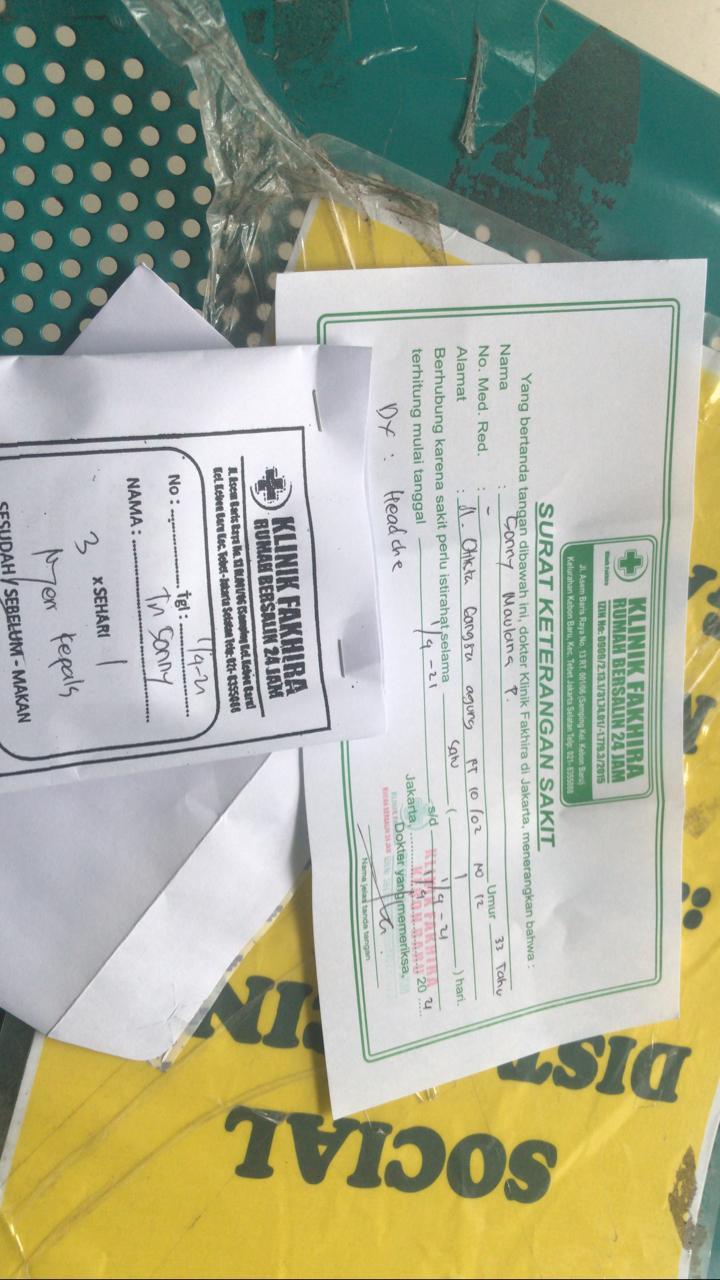 KLINIK FAKHIRA
RUMAH BERSALIN 24 JAM
IZIN No: 0909/2.13.1/31.74.01/-1.779.3/2015
Jl. Asem Baris Raya No. 13 RT. 001/06 (Samping Kel. Kebon Baru)
Kelurahan Kebon Baru, Kec. Tebet Jakarta Selatan Telp: 021-8355088
SURAT KETERANGAN SAKIT
Yang bertanda tangan dibawah ini, dokter Klinik Fakhira di Jakarta, menerangkan bahwa :
Nama : Sonny Maulana P. Umur 33 Tahu
No. Med. Red. : -
Alamat : Jl. agung RT 10/02 No 12
Berhubung karena sakit perlu istirahat selama satu ( 1 ) hari.
terhitung mulai tanggal 1/9-21 s/d 1/9-21
Dx : Headche
Jakarta, 1/9 20 21
Dokter yang memeriksa,
KLINIK FAKHIRA
KEBON BARU
Nama jelas tanda tangan
KLINIK FAKHIRA
RUMAH BERSALIN 24 JAM
Jl. Asem Baris Raya No. 13 Rt.001/06 (Samping Kel. Kebon Baru)
Kel. Kebon Baru Kec. Tebet-Jakarta Selatan Telp. 021-8355088
No : Tgl : 1/9-21
NAMA : Tn Sonny
3 x SEHARI 1
Nyeri kepala
SESUDAH / SEBELUM - MAKAN
SOCIAL